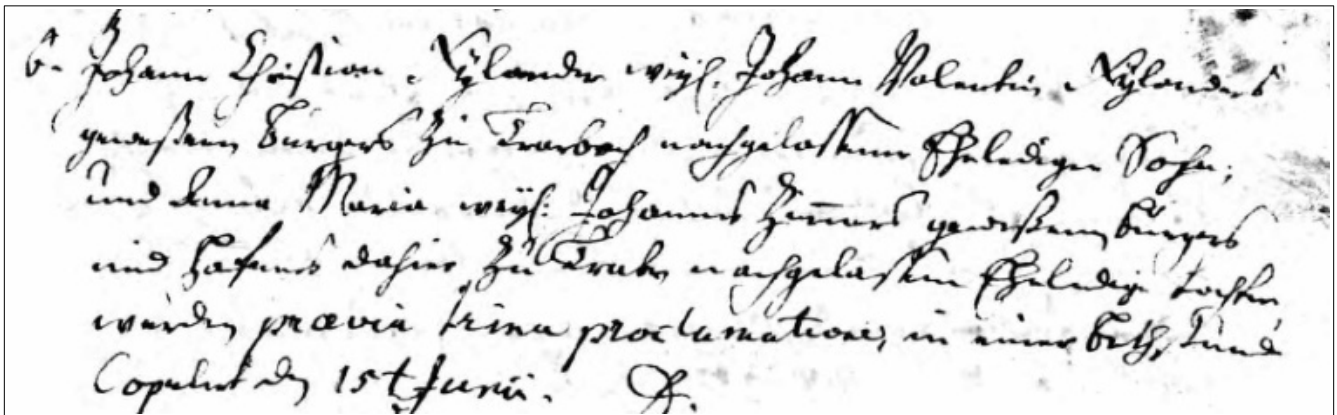 6. Johann Christian Xylander weyl. Johann Valentin Xylanders
geweßenen Burgers Zu Trarbach nachgelassener Ehelediger Sohn;
und Anna Maria weyl: Johannes Zimers geweßenen burgers
und Hafners dahier Zu Traben nachgelaßene Eheledige tochter
wurden prævia trina proclamatione, in einer bethstund
Copulirt den 15t Junii.